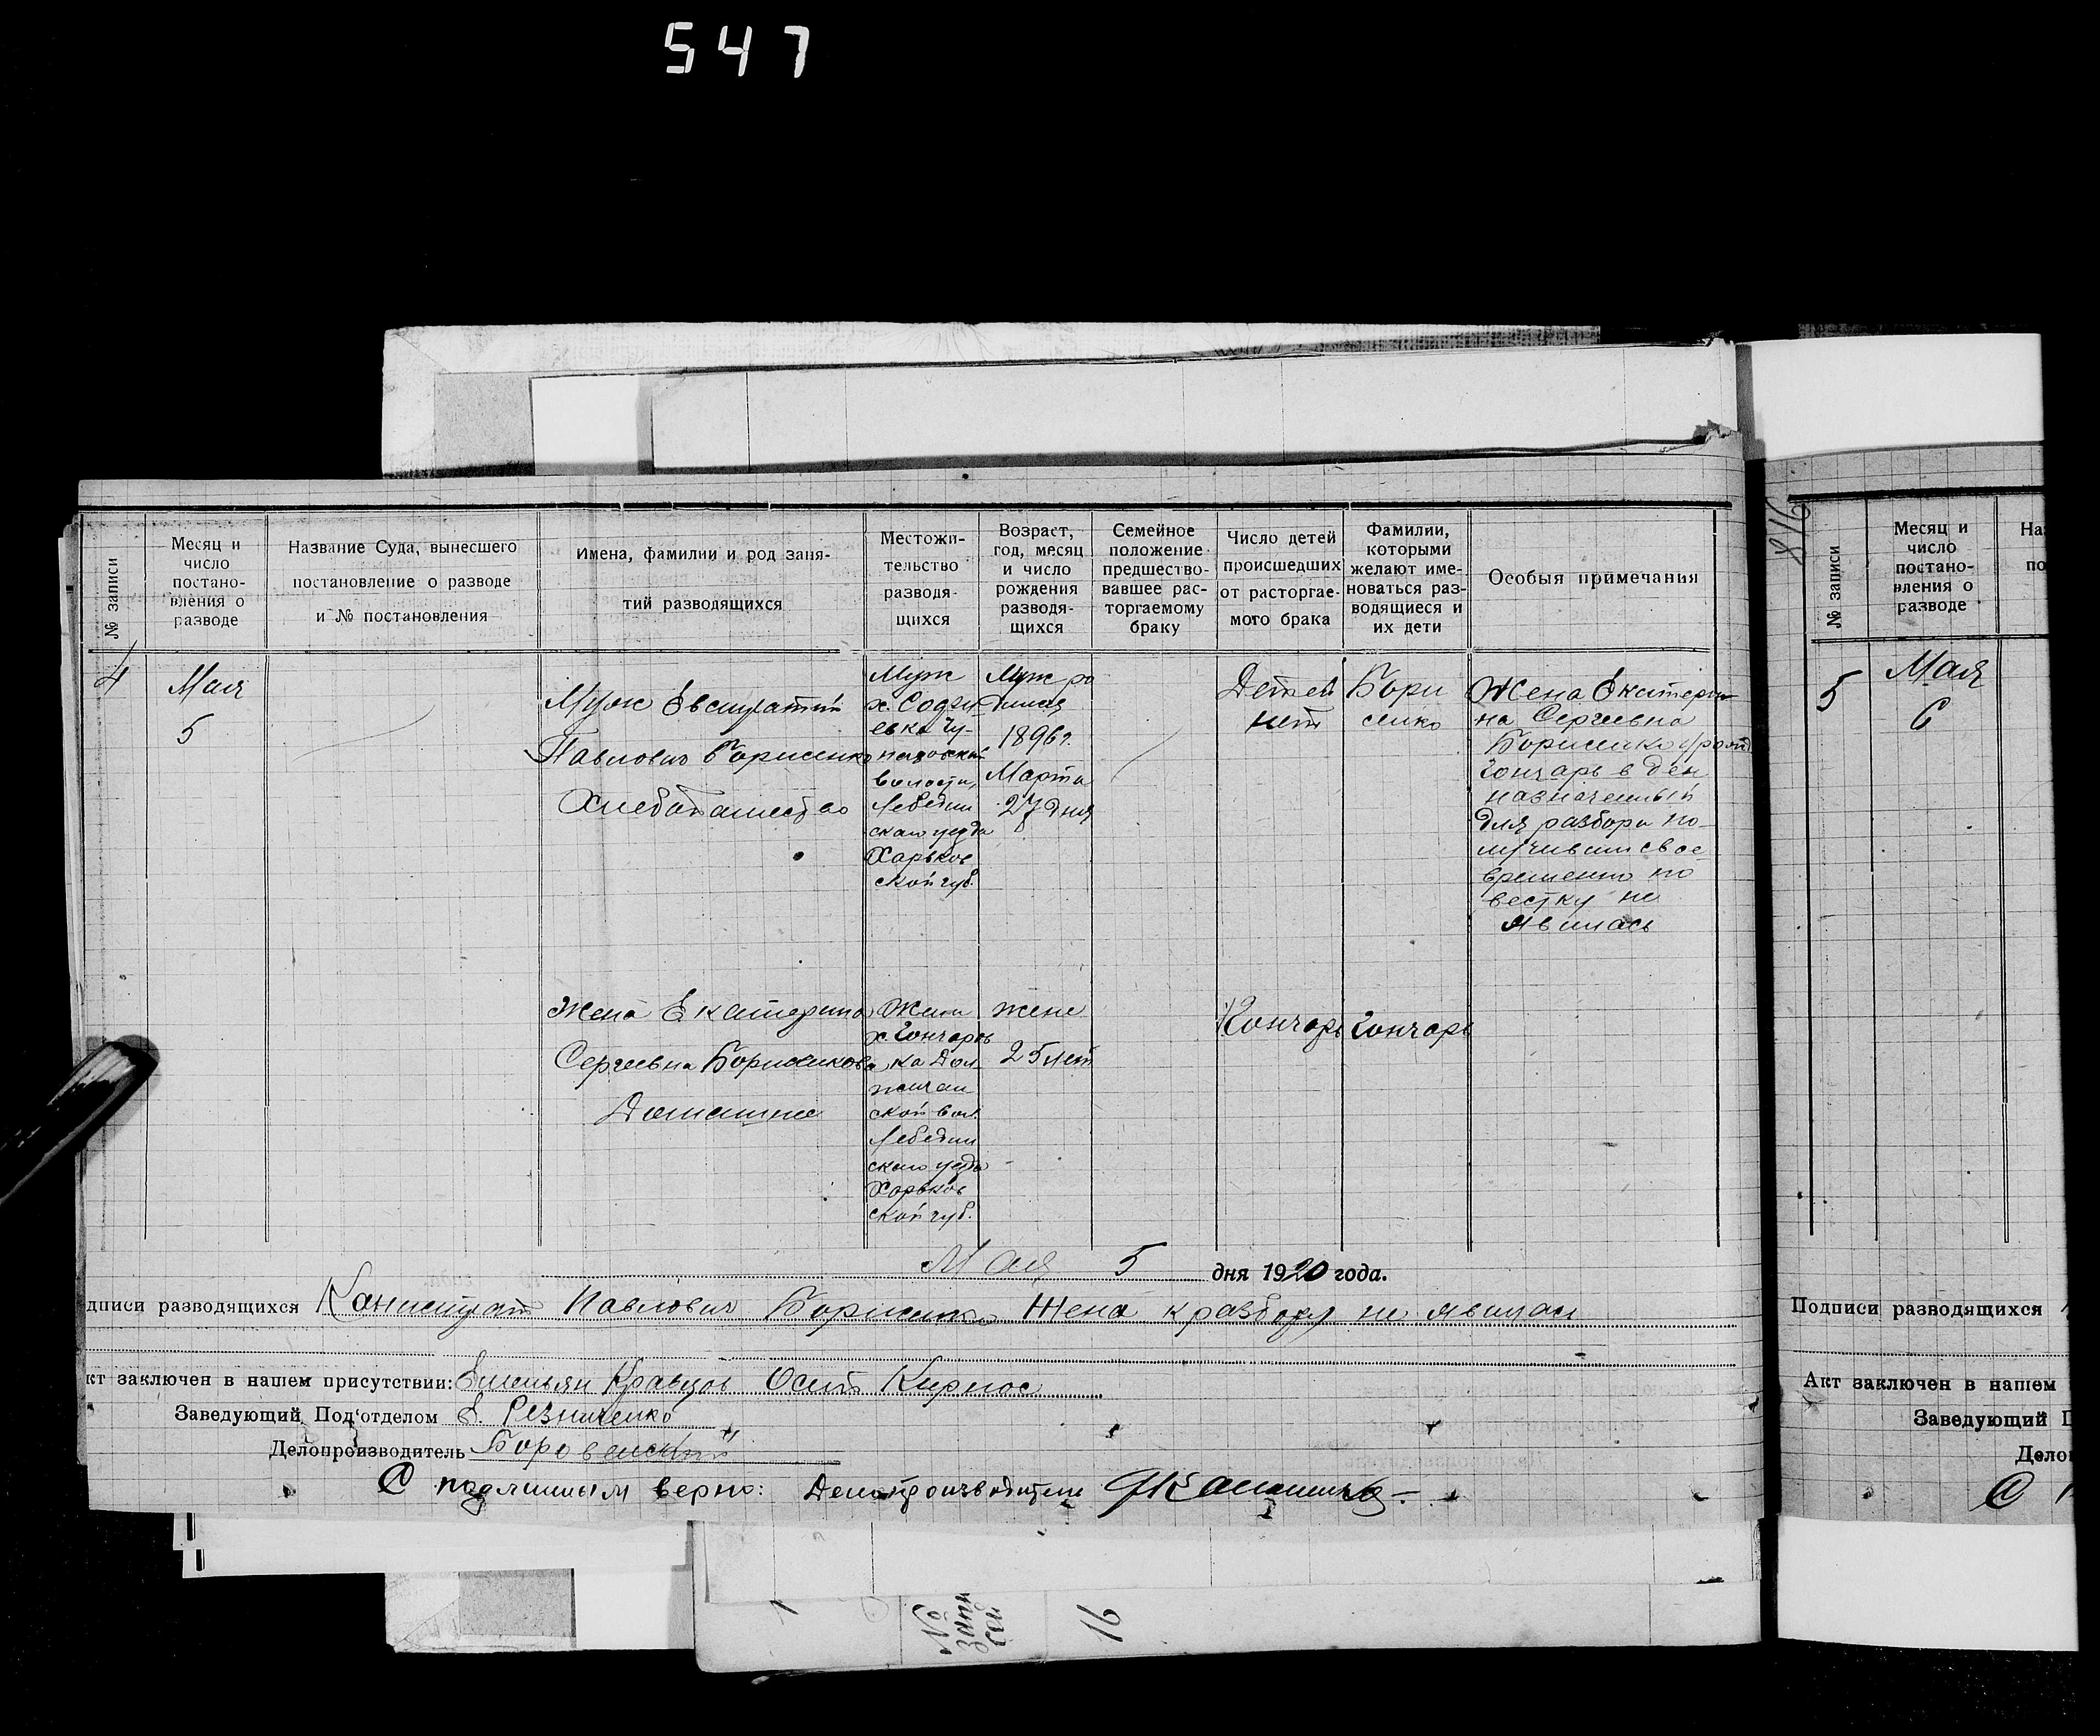 547
№ записи
Месяц и
число
постано-
вления о
разводе
Название Суда, вынесшего
постановление о разводе
и № постановления
Имена, фамилии и род заня-
тий разводящихся
Местожи-
тельство
разводя-
щихся
Возраст,
год, месяц
и число
рождения
разводя-
щихся
Семейное
положение
предшество-
вавшее рас-
торгаемому
браку
Число детей
происшедших
от расторгае-
мого брака
Фамилии,
которыми
желают име-
новаться раз-
водящиеся и
их дети
Особыя примечания
4
Мая
5
Муж Евстратий
Павлович Борисенко
Хлебопашество
Муж
х.
евка Чу-
волости,
Лебедин
скаго уезда
Харьков
ской губ.
Муж ро
1896 г.
Марта
27 дня
Детей
нет
Бори
сенко
Жена Екатери
на Сергеевна
Борисенко
Гончарь в ден
назначенный
для разбора по-
лучивши свое
временно по
вестку не
явилась
Жена Екатерина
Сергеевна Борисенкова
Домашнее
Жена
х. Гончаров
ка Дол
жичан
ской вол.
Лебедин
скаго уезда
Харьков
ской губ.
жене
25 лет
Гончарь
Гончарь
Мая 5 дня 1920 года.
дписи разводящихся Павлович Борисенко Жена к разбору не явилась
кт заключен в нашем присутствии: Емельян Кравцов Осип Кирнос
Заведующий Под'отделом Е. Резниченко
Делопроизводитель Боровенский
С подлинным верно: Делопроизводитель
№
запи
сей
16
816
№ записи
Месяц и
число
постано-
вления о
разводе
На
по
5
Мая
6
Подписи разводящихся
Акт заключен в нашем
Заведующий П
Дело
С